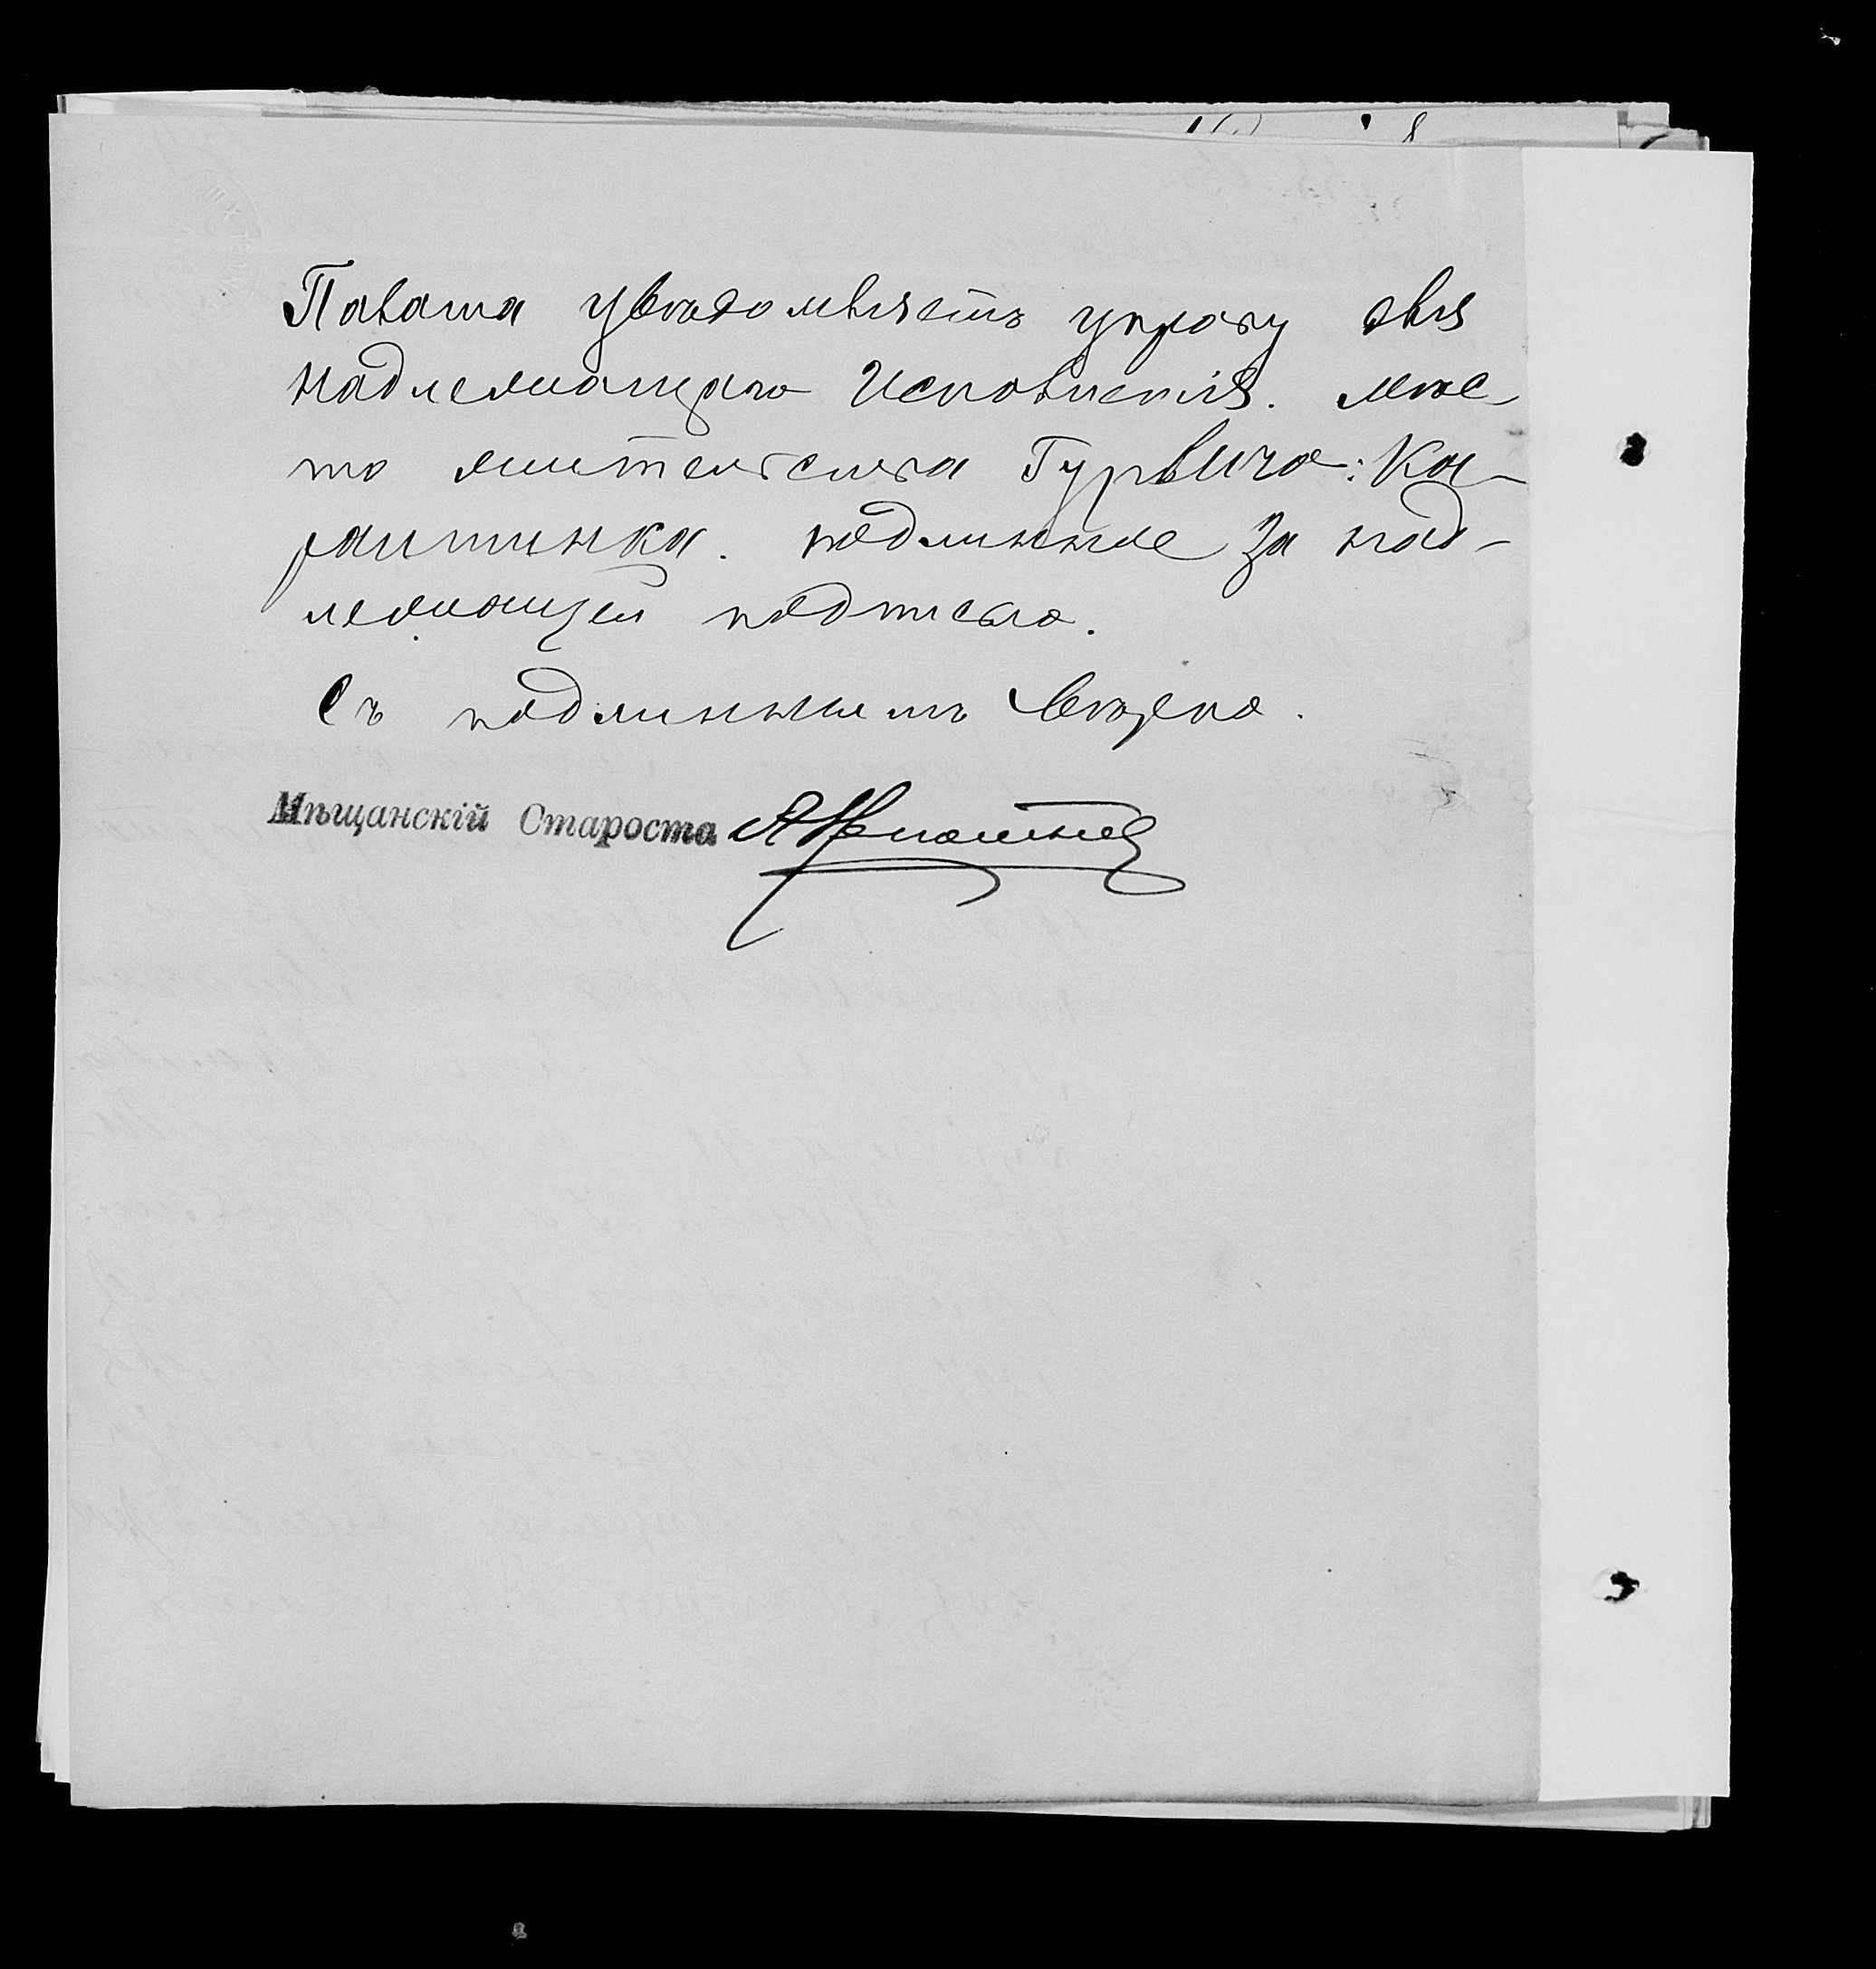 Палата увѣдомляетъ управу для
надлежащаго исполненія. Мѣс-
то жительства Гурвича: Ка-
рантинка. подлинное за над-
лежащей подписью.
Съ подлиннымъ вѣрно.
Мѣщанскій Староста